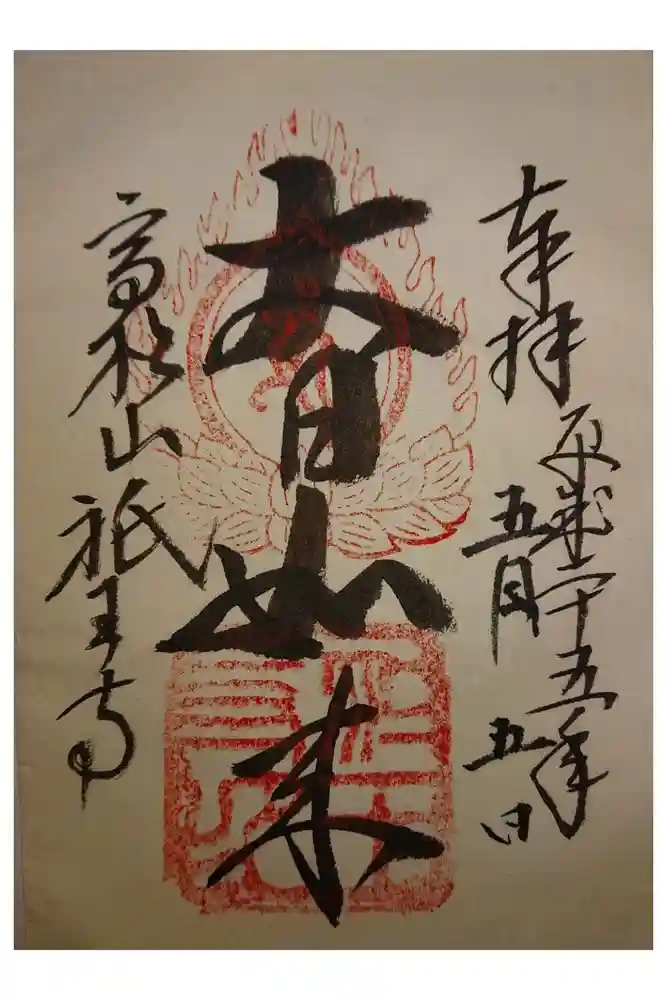 奉拝
平成二十五年
五月五日
大日如来
高松山 祇王寺